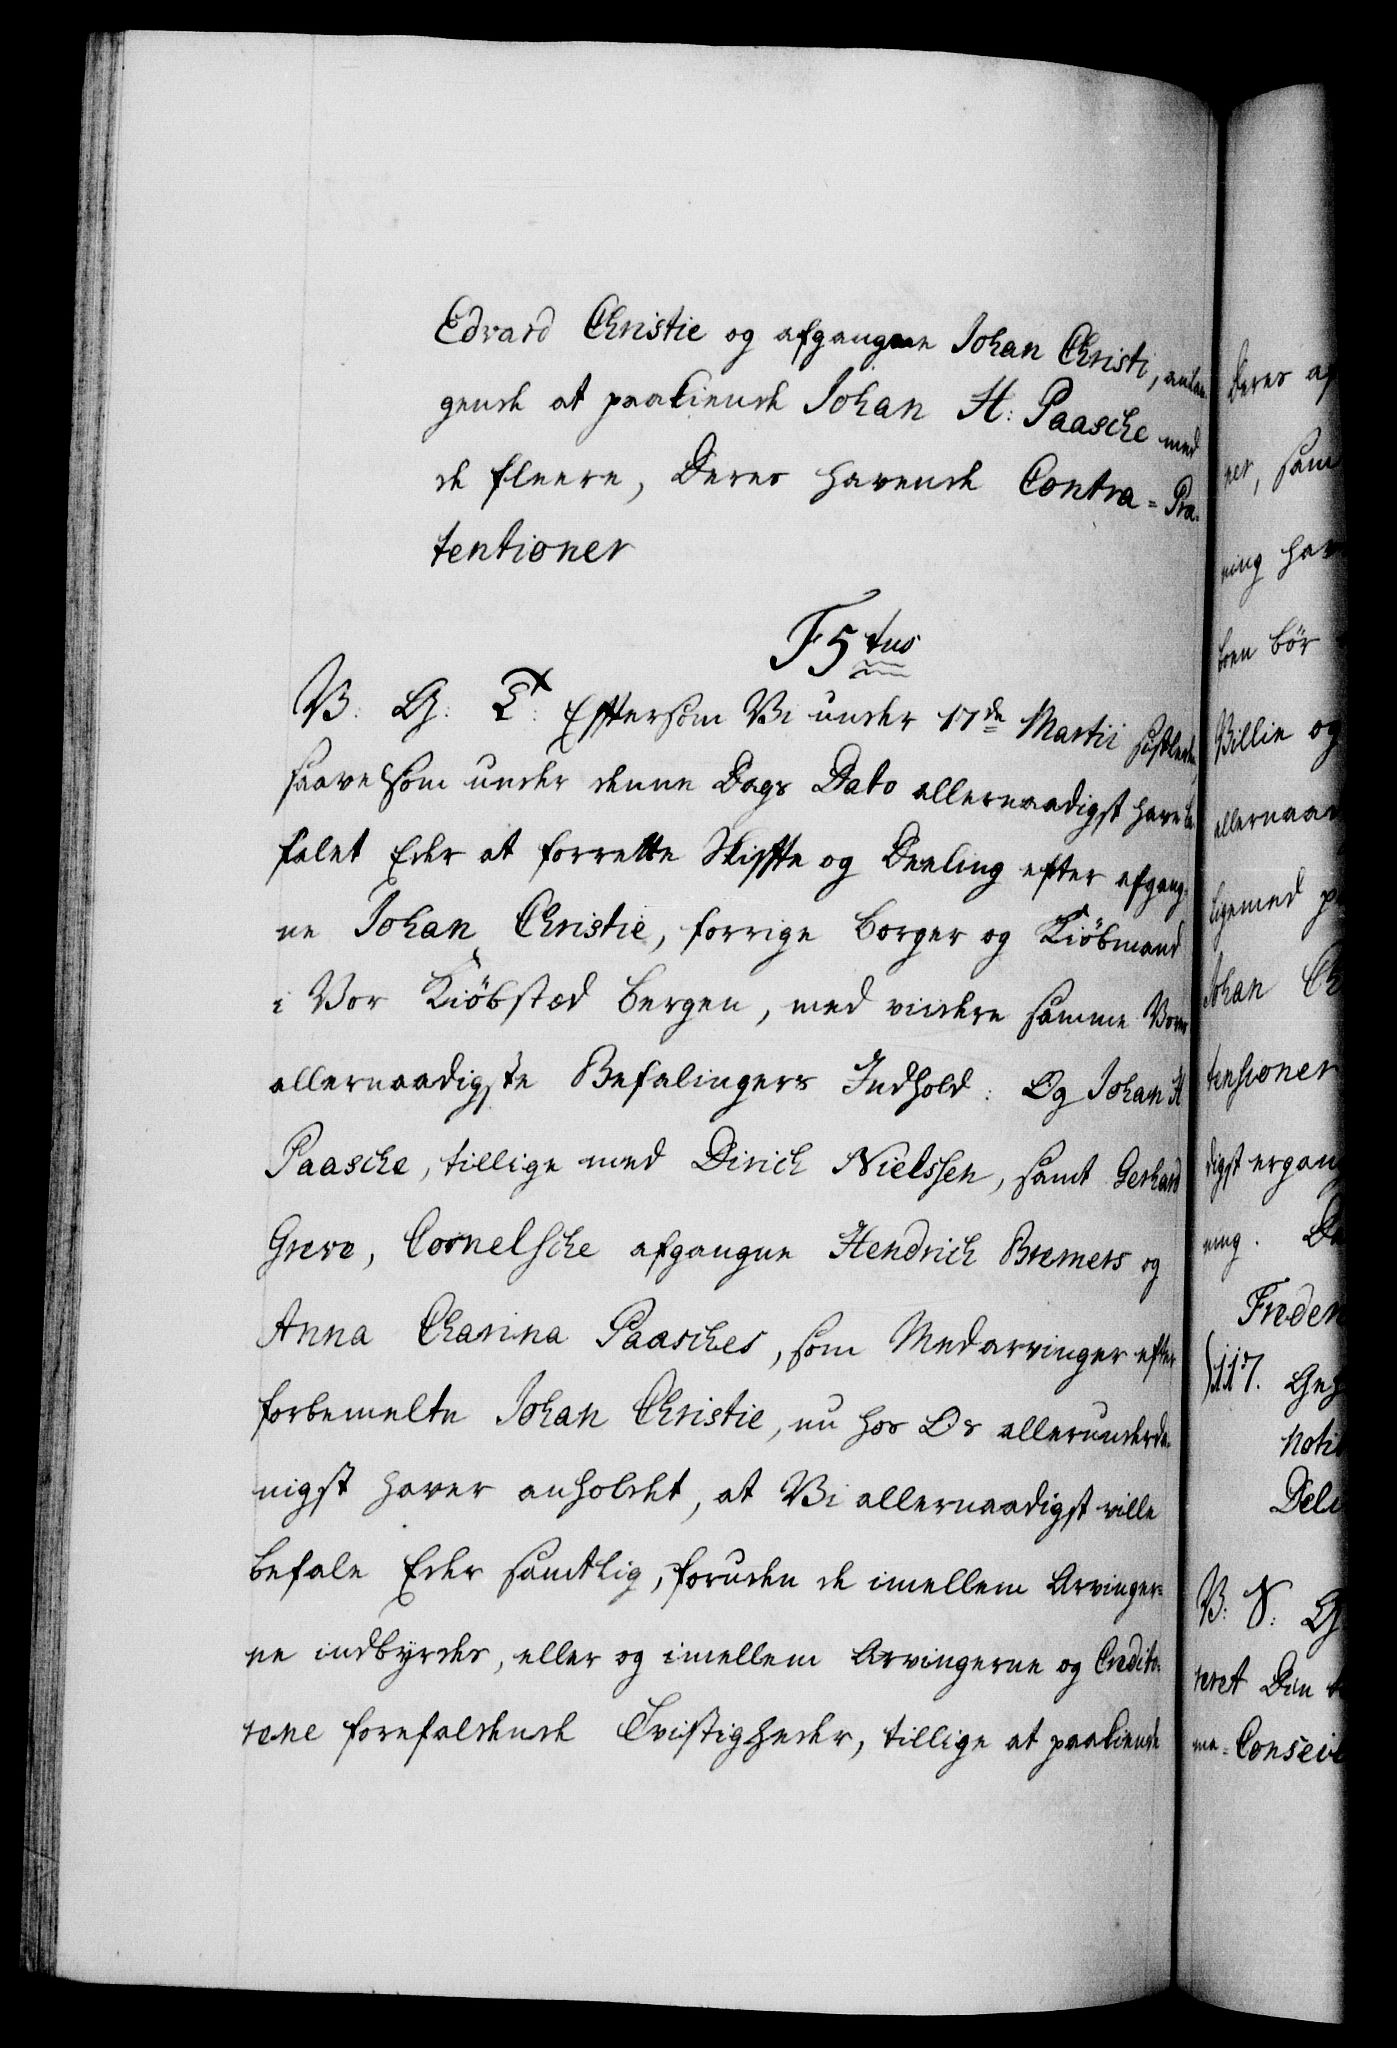 Edvard Christie og afgangne Johan Christi, anlan¬
gende at paakiende Johan H: Paasche med
de fleere, Deres havende Contra-Præ-
tentioner
F5tus
V: G: T: Eftersom Vi under 17de Martii sistleden,
saavelsom under denne Dags Dato allernaadigst have be-
falet Eder at forrette Skiffte og Deeling efter afgang-
ne Johan Christie, forrige Borger og Kiöbmand
i Vor Kiöbstæd Bergen, med viidere samme Vores
allernaadigste Befalingers Indhold: Og Johan H.
Paasche, tillige med Dirich Nielssen, samt Gerhard
Greve, Cornelsche afgangne Hendrich Bremers og
Anna Charina Paasches, som Medarvinger efter
forbemelte Johan Christie, nu hos Os allerunderda-
nigst haver anholdet, at Vi allernaadigst ville
befale Eder samtlig, foruden de imellem Arvinger-
ne indbyrdes, eller og imellem Arvingerne og Credito-
rerne forefaldende Tvistigheder, tillige at paakiende
Deres af
ner, sam
ning hav
boen bör
Billie og
allernaad
ligemed p
Johan Ch
tensioner
digst ergang
ning. De
Frederi
117.
Noti
Dele
V: S: G:
reret Din
me-Conseil